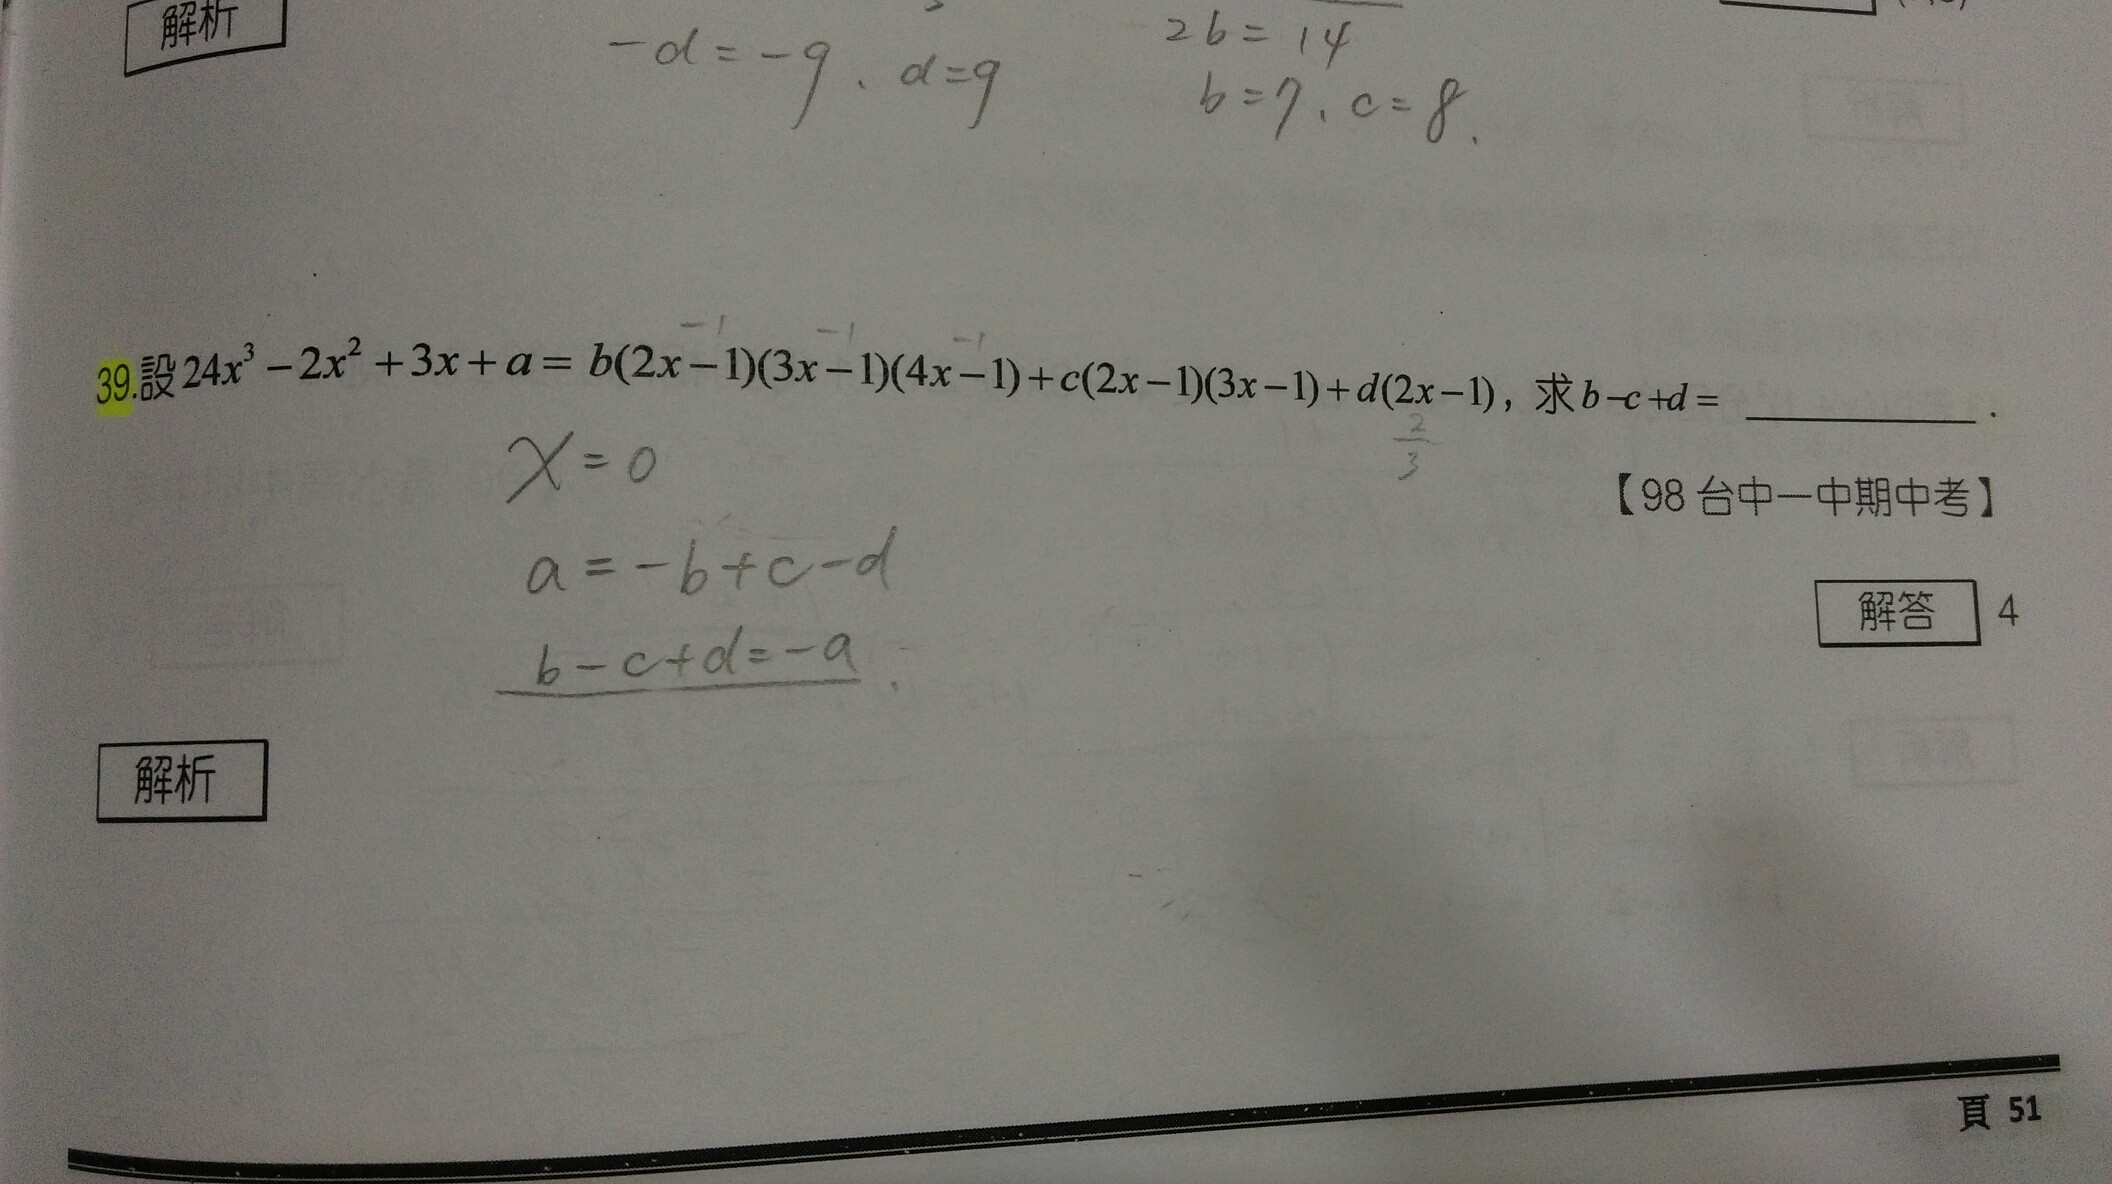 解析
-d=-9、d=9
2b=14
b=7、c=8.
39.設24x³-2x²+3x+a=b(2x-1)(3x-1)(4x-1)+c(2x-1)(3x-1)+d(2x-1)，求b-c+d=________.
-1 -1 -1
2/3
x=0
【98台中一中期中考】
a=-b+c-d
解答 4
b-c+d=-a.
解析
頁 51